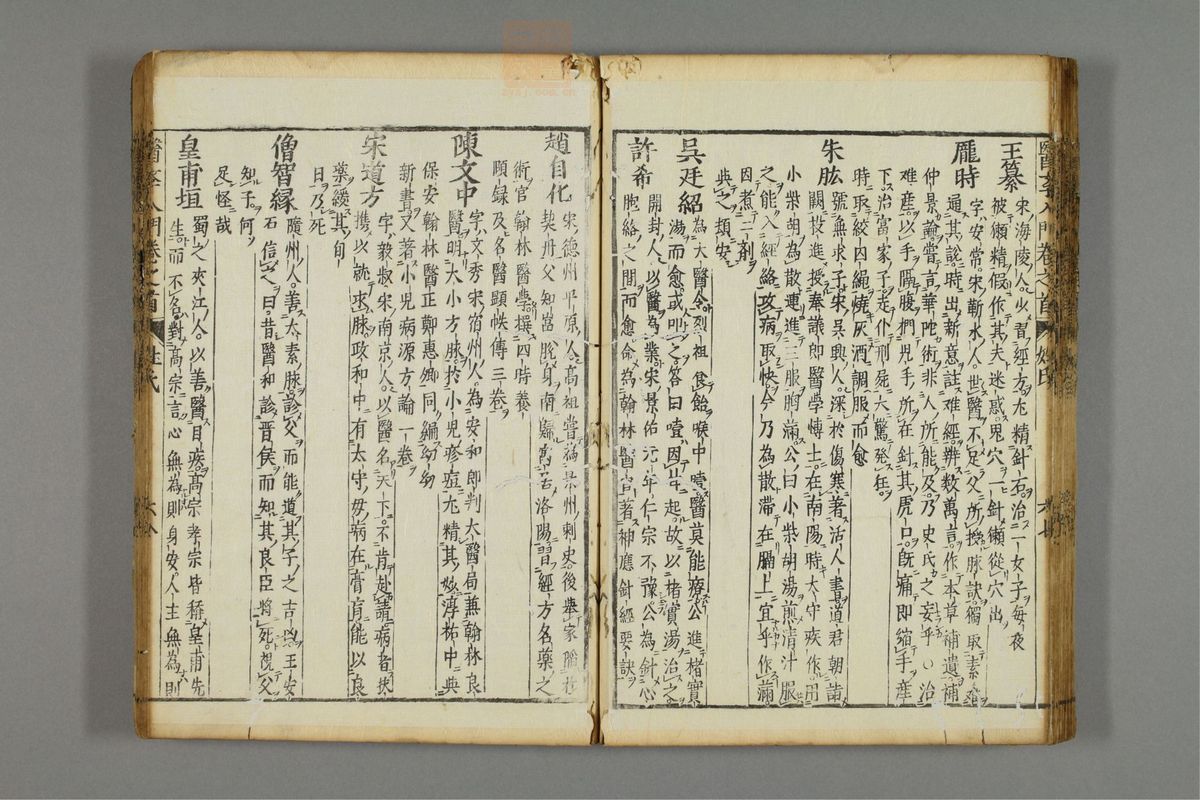 王纂
宋海陵人少習經方尤精針石治一女子每夜
被獺精假作其夫迷惑鬼穴一針獺從穴出
龐時
字安常宋蘄水人世醫不足父所授脉訣獨取素
通其說時出新意註难經辨数萬言作本草補遺補
仲景論嘗言華陀術非人所能及乃史氏之妄乎○治
难產以手隔腹捫児手所在針其虎口既痛即縮手產
下治富家子走仆刑屍大驚発狂
時取絞囚繩燒灰酒調服而愈
朱肱
號無求子宋吳興人深於傷寒著活人書道君朝詣
闕投進授奉議郎醫學博士在南陽時太守疾作
小柴胡為散連進三服胸滿公曰小柴胡湯煎清汁服
之能入經絡攻病取快今乃為散滯在膈上宜乎作滿
因煮二剤
與之頓安
吳廷紹
為大醫令烈祖食飴喉中噎醫莫能療公進楮實
湯而愈或叩之答曰噎因甘起故以楮實湯治之
許希
開封人以醫為業宋景佑元年仁宗不豫公為針心
胞絡之間而愈命為翰林醫官著神應針經要訣
趙自化
宋德州平原人高祖嘗為景州刺史後舉家陷於
契丹父知嵓脫身南歸寓居洛陽習經方名藥之
術官翰林醫學撰四時養
頤録及名醫顕帙傳三卷
陳文中
字文秀宋宿州人為安和郎判大醫局兼翰林良
醫明大小方脉於小児疹痘尤精其妙淳祐中與
保安翰林醫正鄭惠卿同編幼幼
新書又著小児病源方論一卷
宋道方
字毅叔宋南京人以醫名天下不肯赴請病者扶
携以就求脉政和中有太守母病在膏肓能以良
藥緩其旬
日乃死
僧智縁
隨州人善太素脉診父而能道其子之吉凶王安
石信之曰昔醫和診晋侯而知其良臣將死視父
知子何
足怪哉
皇甫垣
蜀之夾江人以善醫目疾高宗孝宗皆稱皇甫先
生而不名對高宗言心無為則身安人主無為則
醫李入門卷之首 姓氏